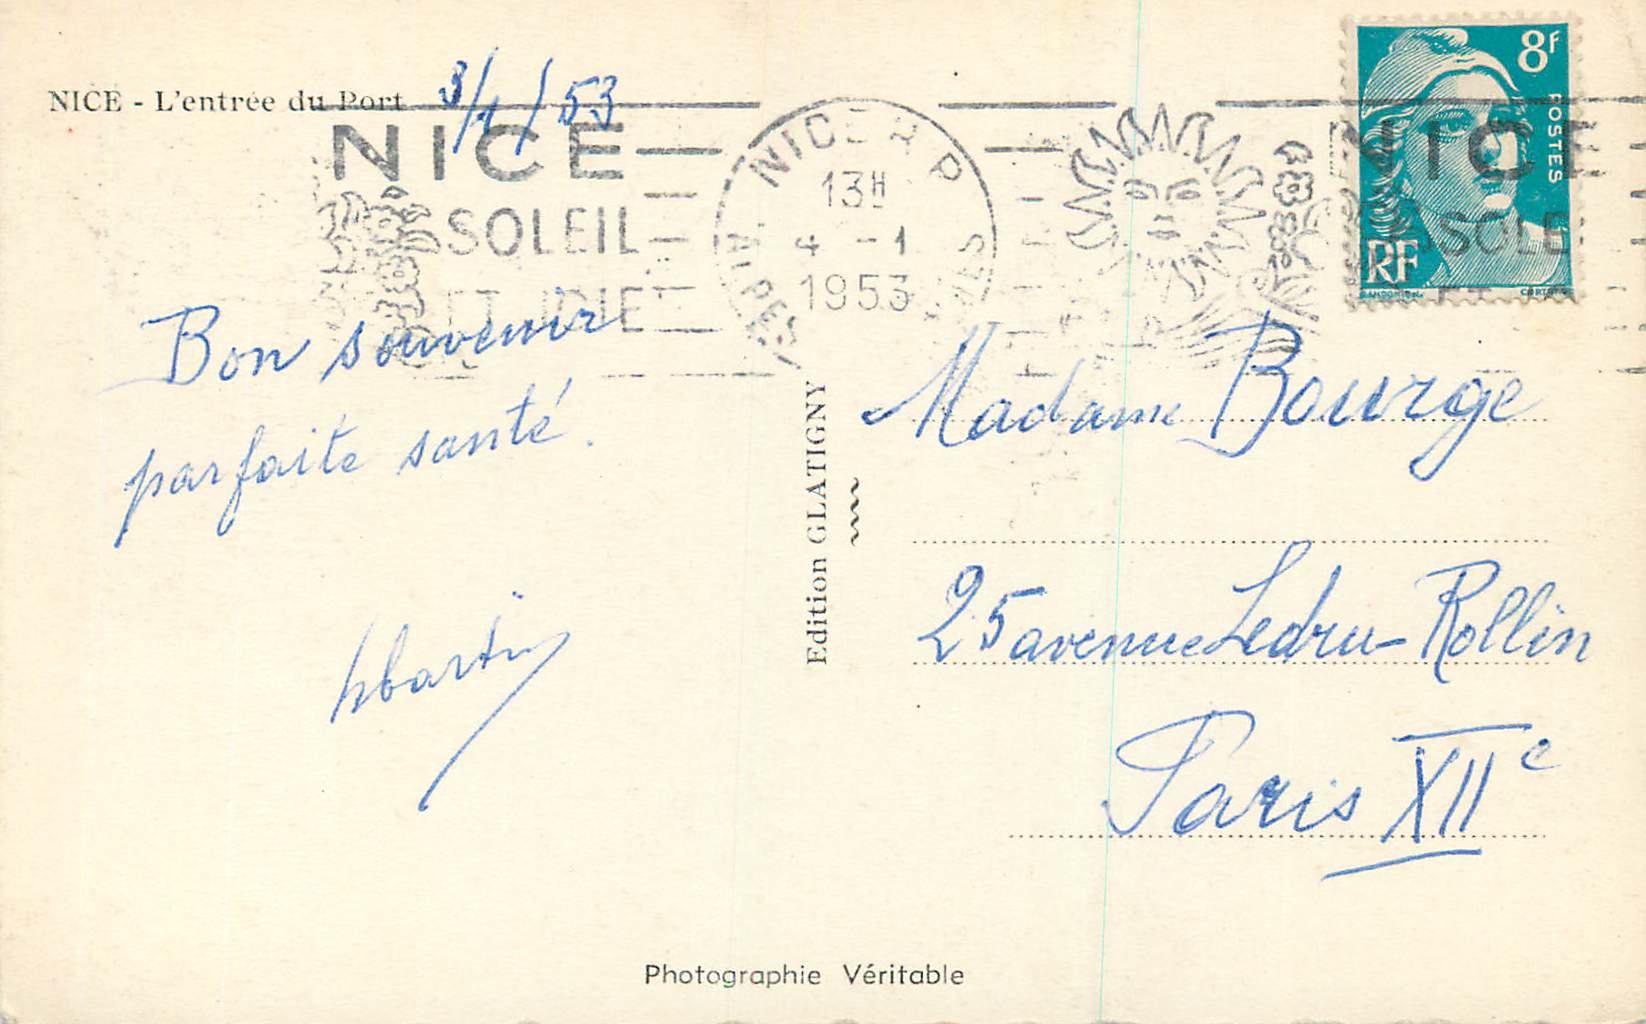 NICE - L'entrée du Port
3/1/53
NICE
SOLEIL
ET JOIE
NICE R P
13H
4 - 1
1953
ALPES
8F
POSTES
RF
NICE
SOLE
Bon souvenir
parfaite santé.
Edition GLATIGNY
Madame Bourge
25 avenue Ledru-Rollin
Paris XIIe
Photographie Véritable